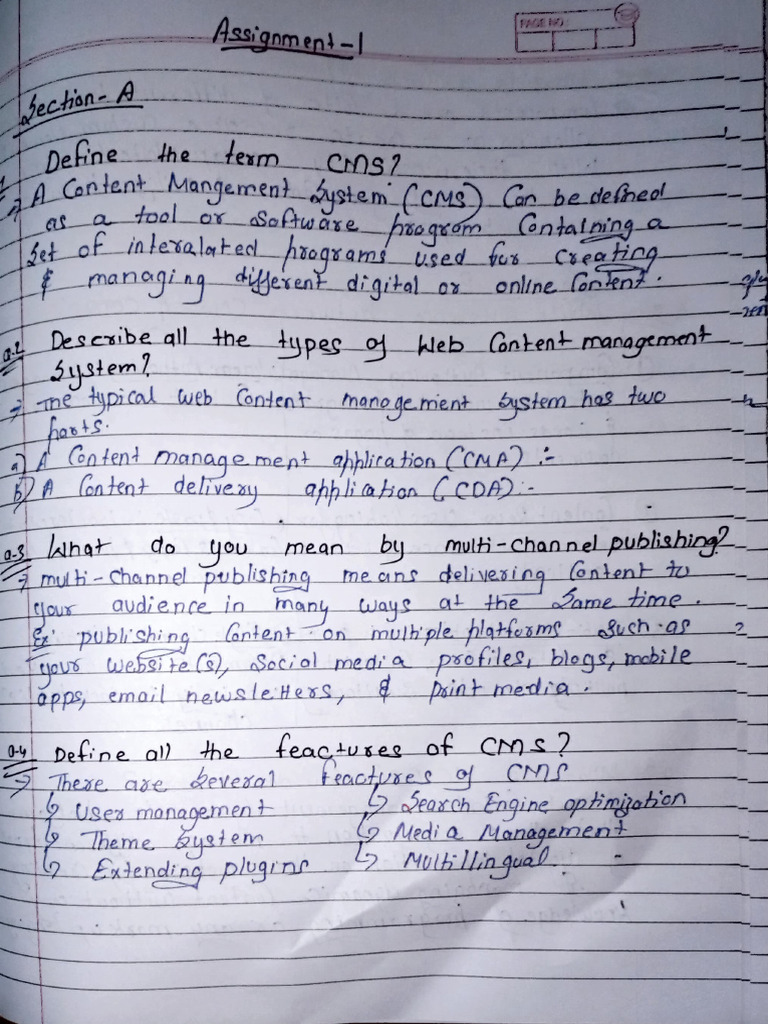 Assignment-1
PAGE NO:
Section-A
Define the term CMS?
→ A Content Mangement System (CMS) Can be defined
as a tool or software program Containing a
Set of interalated programs used for Creating
& managing different digital or online Content.
Q.2 Describe all the types of Web Content management
System?
→ The typical web Content management System has two
parts.
a) A Content management application (CMA) :-
b) A Content delivery application (CDA):-
Q-3 What do you mean by multi-channel publishing?
→ multi-channel publishing means delivering Content to
your audience in many ways at the Same time.
Ex: publishing Content on multiple platforms such as
your website(s), Social media profiles, blogs, mobile
apps, email newsletters, & print media.
Q-4 Define all the feactures of CMS?
→ There are Several feactures of CMS
↳ User management ↳ Search Engine optimization
↳ Theme System ↳ Media Management
↳ Extending plugins ↳ Multillingual.